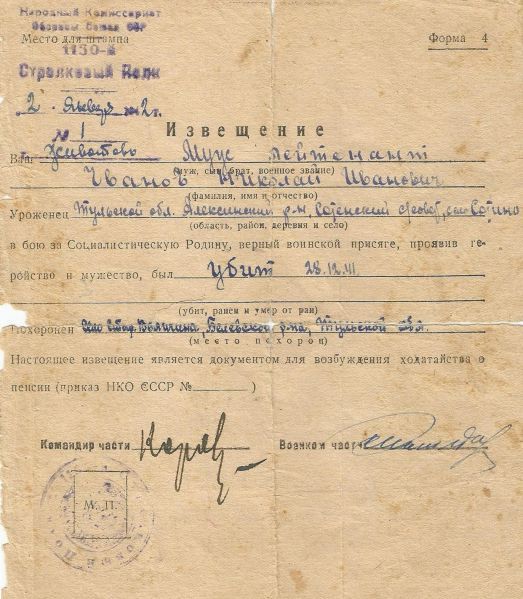 Народный Комиссариат
Обороны Союза ССР
Место для штампа
Форма 4
1130-й
Стрелковый Полк
2 Января 1942 г.
№ 1
Извещение
Ваш Муж лейтенант
(муж, сын, брат, военное звание)
Иванов Николай Иванович
(фамилия, имя и отчество)
Уроженец Тульской обл. Алексинский р-н,
(область, район, деревня и село)
в бою за Социалистическую Родину, верный воинской присяге, проявив ге-
ройство и мужество, был убит 28.12.41
(убит, ранен и умер от ран)
Похоронен Белевского р-на, Тульской обл.
(место похорон)
Настоящее извещение является документом для возбуждения ходатайства о
пенсии (приказ НКО СССР №______)
Командир части
Военком части
М. П.